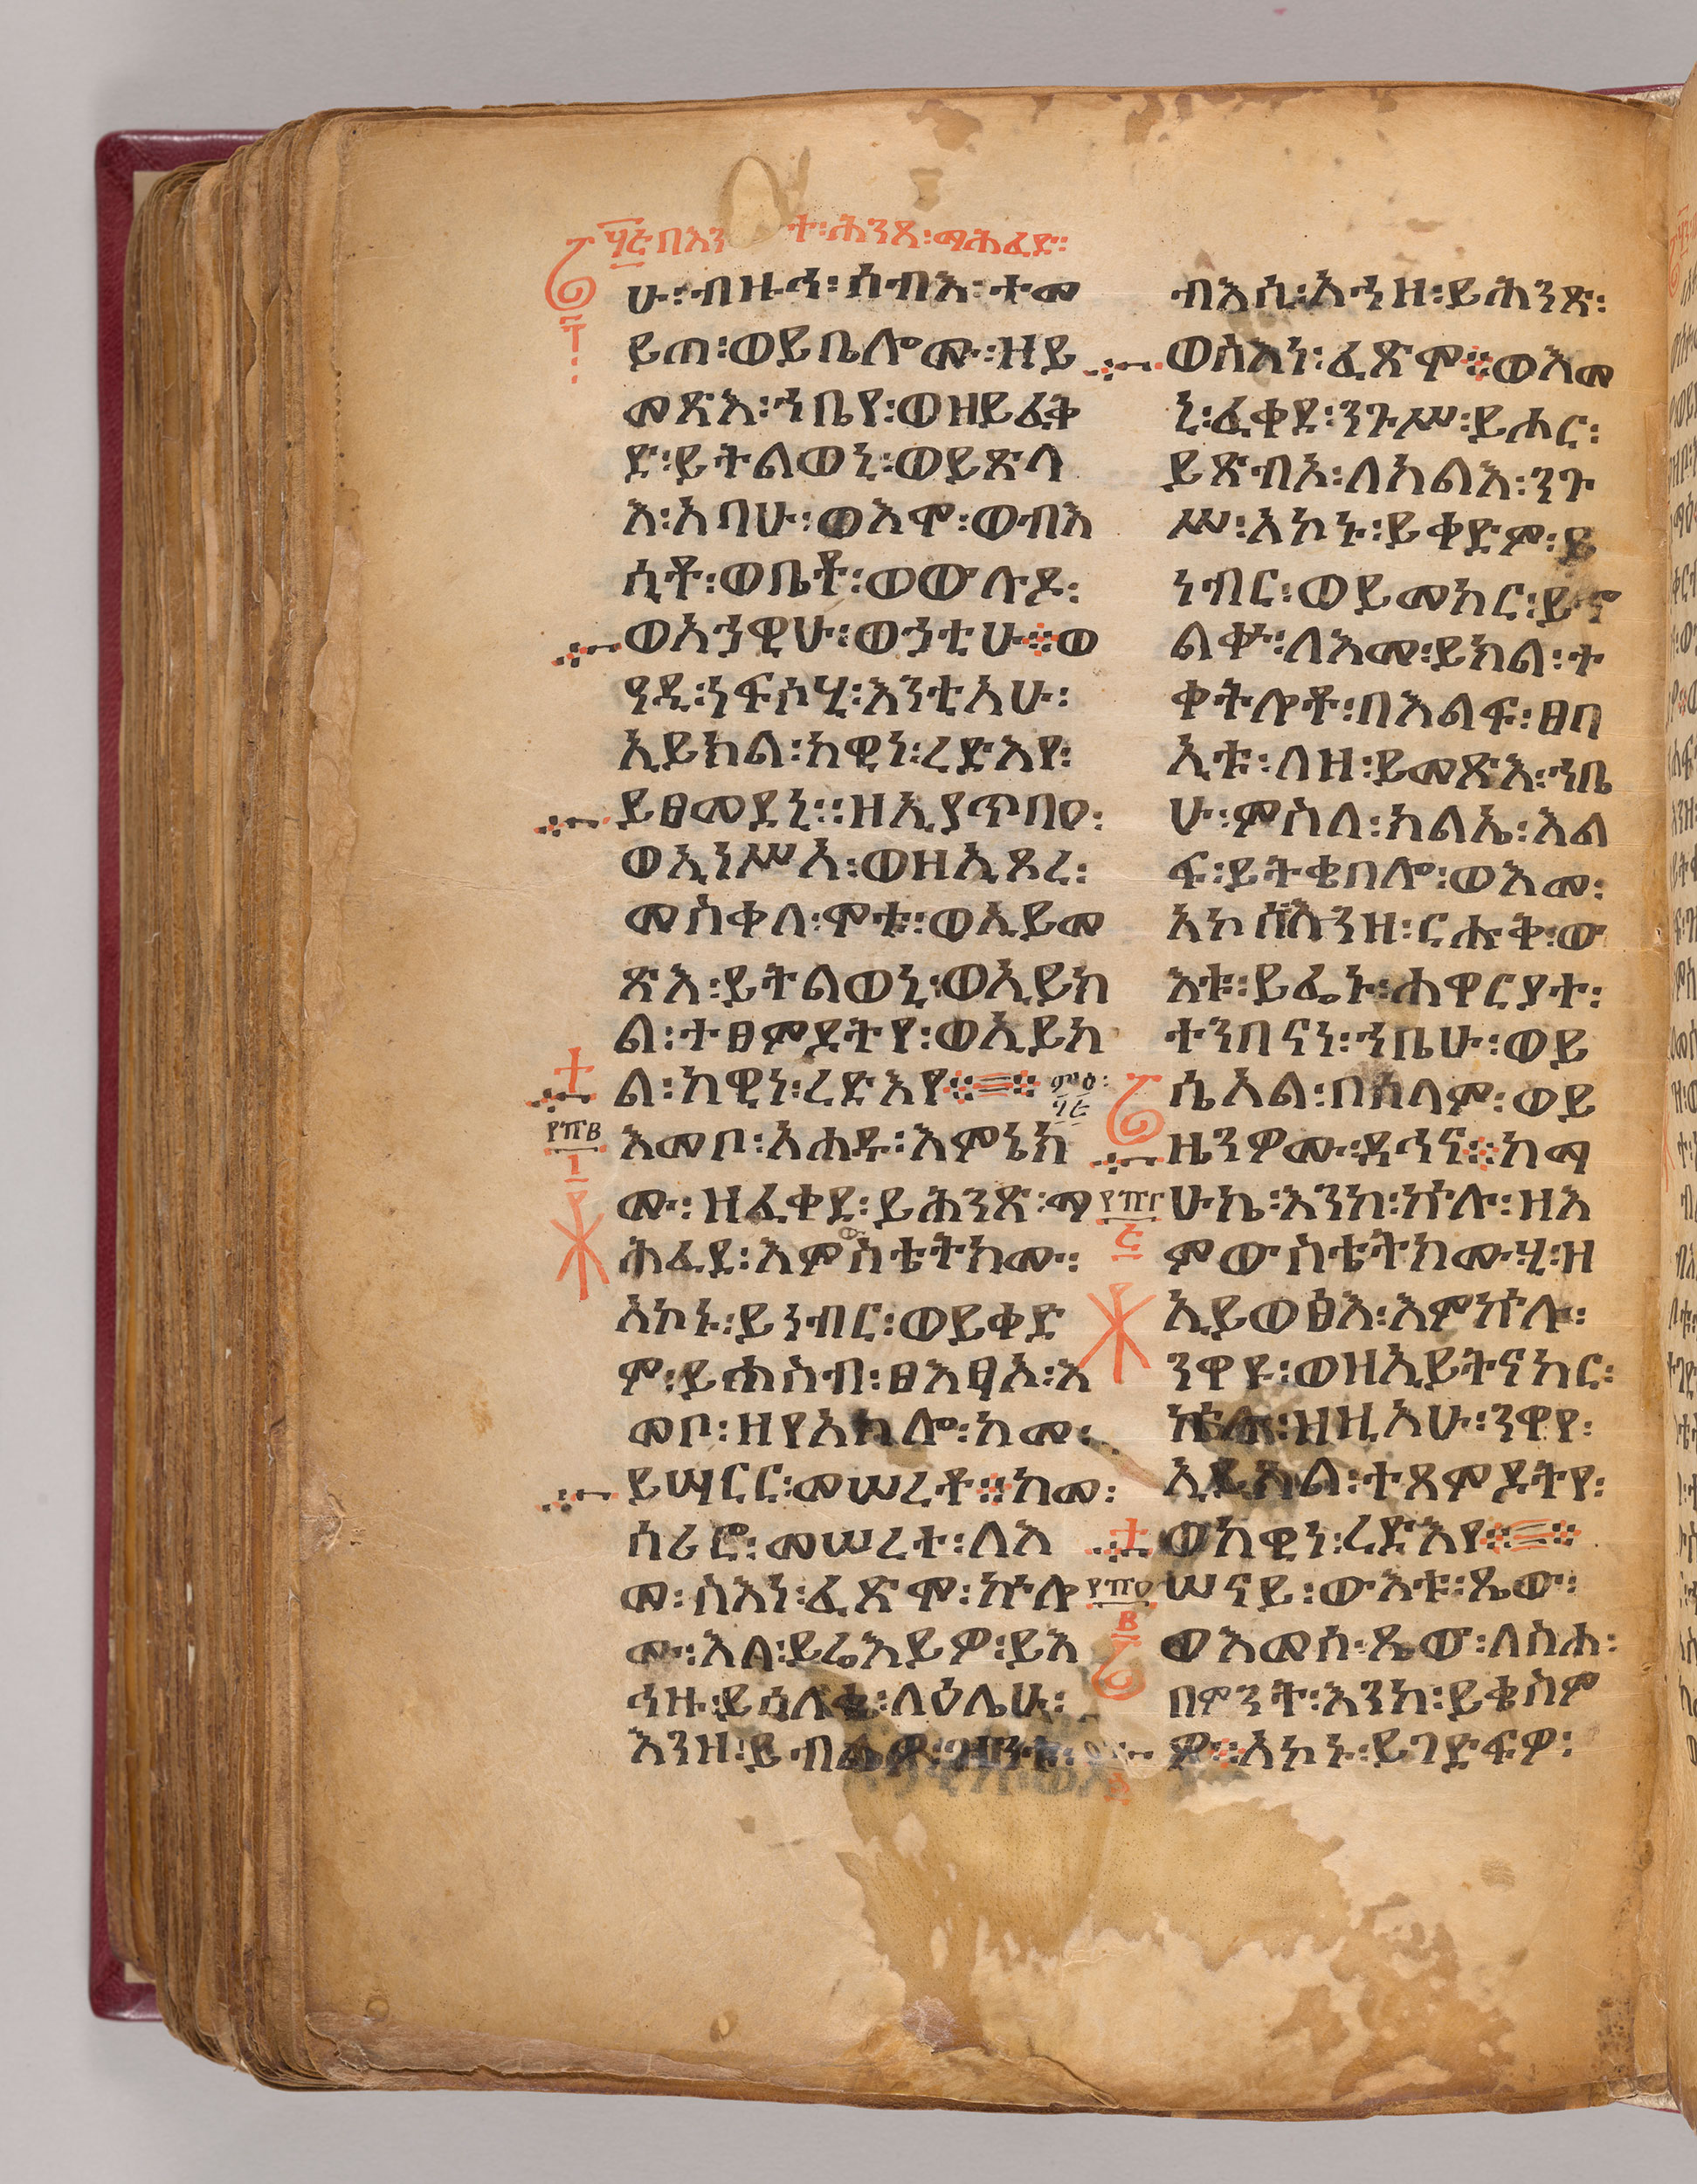 በእን ት፡ሕንጸ፡ማሕፈድ፡
ሁ፡ብዙኅ፡ሰብእ፡ተመ
ይጠ፡ወይቤሎሙ፡ዘይ
መጽእ፡ኀቤየ፡ወዘይፈቅ
ድ፡ይትልወኒ፡ወይጽላ
እ፡አባሁ፡ወእሞ፡ወብእ
ሲቶ፡ወቤቶ፡ወውሉዶ፡
ወአኃዊሁ፡ወኃቲሁ፨ወ
ዓዲ፡ነፍሶሂ፡እንቲአሁ፡
ኢይክል፡ከዊነ፡ረድእየ፡
ይፀመደኒ፡፡ዘኢያጥበዐ፡
ወኢነሥአ፡ወዘኢጾረ፡
መስቀለ፡ሞቱ፡ወኢይመ
ጽእ፡ይትልወኒ፡ወኢይክ
ል፡ተፀምደትየ፡ወኢይክ
ል፡ከዊነ፡ረድእየ፨፨
እመቦ፡አሐዱ፡እምኔክ
ሙ፡ዘፈቀደ፡ይሕንጽ፡ማ
ሕፈደ፡እምስቴትክሙ፡
አኮኑ፡ይነብር፡ወይቀድ
ም፡ይሐስብ፡ፀእፃኦ፡እ
መቦ፡ዘየአክሎ፡ከመ፡
ይሣርር፡መሠረቶ፨ከመ፡
ሰሪሮ፡መሠረተ፡ለእ
መ፡ስእነ፡ፈጽሞ፡ኵሎ
ሙ፡እለ፡ይሬእይዎ፡ይእ
ኅዙ፡ይሳለቁ፡ላዕሌሁ፡
እንዘ፡ይብልዎ፡ዝንቱ፡
ብእሲ፡አኀዘ፡ይሕንጽ፡
ወስእነ፡ፈጽሞ፨ወእመ
ኒ፡ፈቀደ፡ንጉሥ፡ይሐር፡
ይጽብኦ፡ለካልእ፡ንጉ
ሥ፡አኮኑ፡ይቀድም፡ይ
ነብር፡ወይመክር፡ይኆ
ልቍ፡ለእመ፡ይክል፡ተ
ቀትሎቶ፡በእልፍ፡ፀባ
ኢቱ፡ለዘ፡ይመጽእ፡ኀቤ
ሁ፡ምስለ፡ክልኤ፡እል
ፍ፡ይትቄበሎ፡ወእመ፡
አኮሰ፡እንዘ፡ርሑቅ፡ው
እቱ፡ይፌኑ፡ሐዋርያተ፡
ተንበናነ፡ኀቤሁ፡ወይ
ሴአል፡በሰላም፡ወይ
ዜንዎሙ፡ዳኅና፨ከማ
ሁኬ፡እንከ፡ኵሉ፡ዘእ
ምውስቴትክሙ፡ሂ፡ዘ
ኢይወፅእ፡እምኵሉ፡
ንዋዩ፡ወዘኢይትናከር፡
ኵሎ፡ዝዚአሁ፡ንዋየ፡
ኢይክል፡ተጸምዶትየ፡
ወከዊነ፡ረድእየ፨፨
ሠናይ፡ውእቱ፡ጼው፡
ወእመሰ፡ጼው፡ለስሐ፡
በምንት፡እንከ፡ይቄስም
ዎ፨አኮኑ፡ይገድፍዎ፡